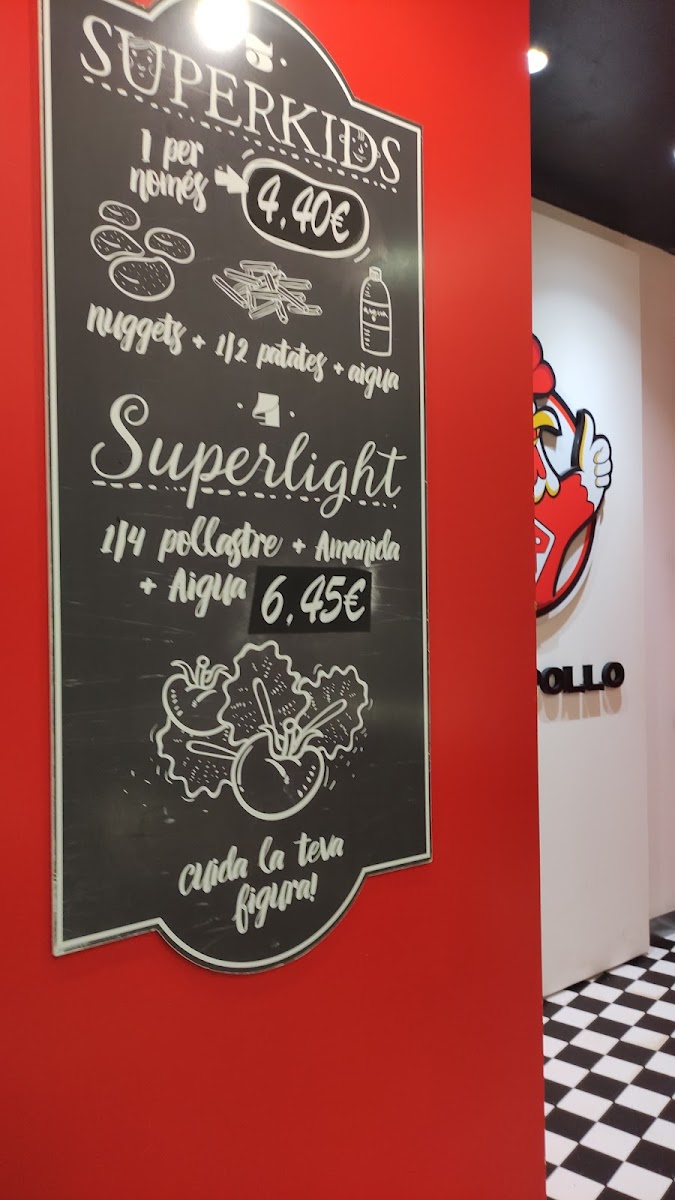 SUPERKIDS
1 per
només
4,40€
aigua
nuggets + 1/2 patates + aigua
Superlight
1/4 pollastre + Amanida
+ Aigua 6,45€
cuida la teva
figura!
POLLO